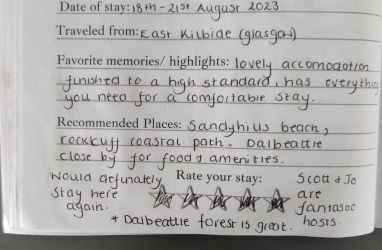 Date of stay: 18th - 21st August 2023
Traveled from: East Kilbide (glasgow)
Favorite memories/ highlights: lovely accomodation
funished to a high standard, has everything
you need for a comfortable stay.
Recommended Places: Sandyhills beach,
rockcliff coastal path. Dalbeattie
close by for food & amenities.
Would definately
stay here
again.
Rate your stay:
Scott & Jo
are
fantastic
hosts.
+ Dalbeattie forest is great.